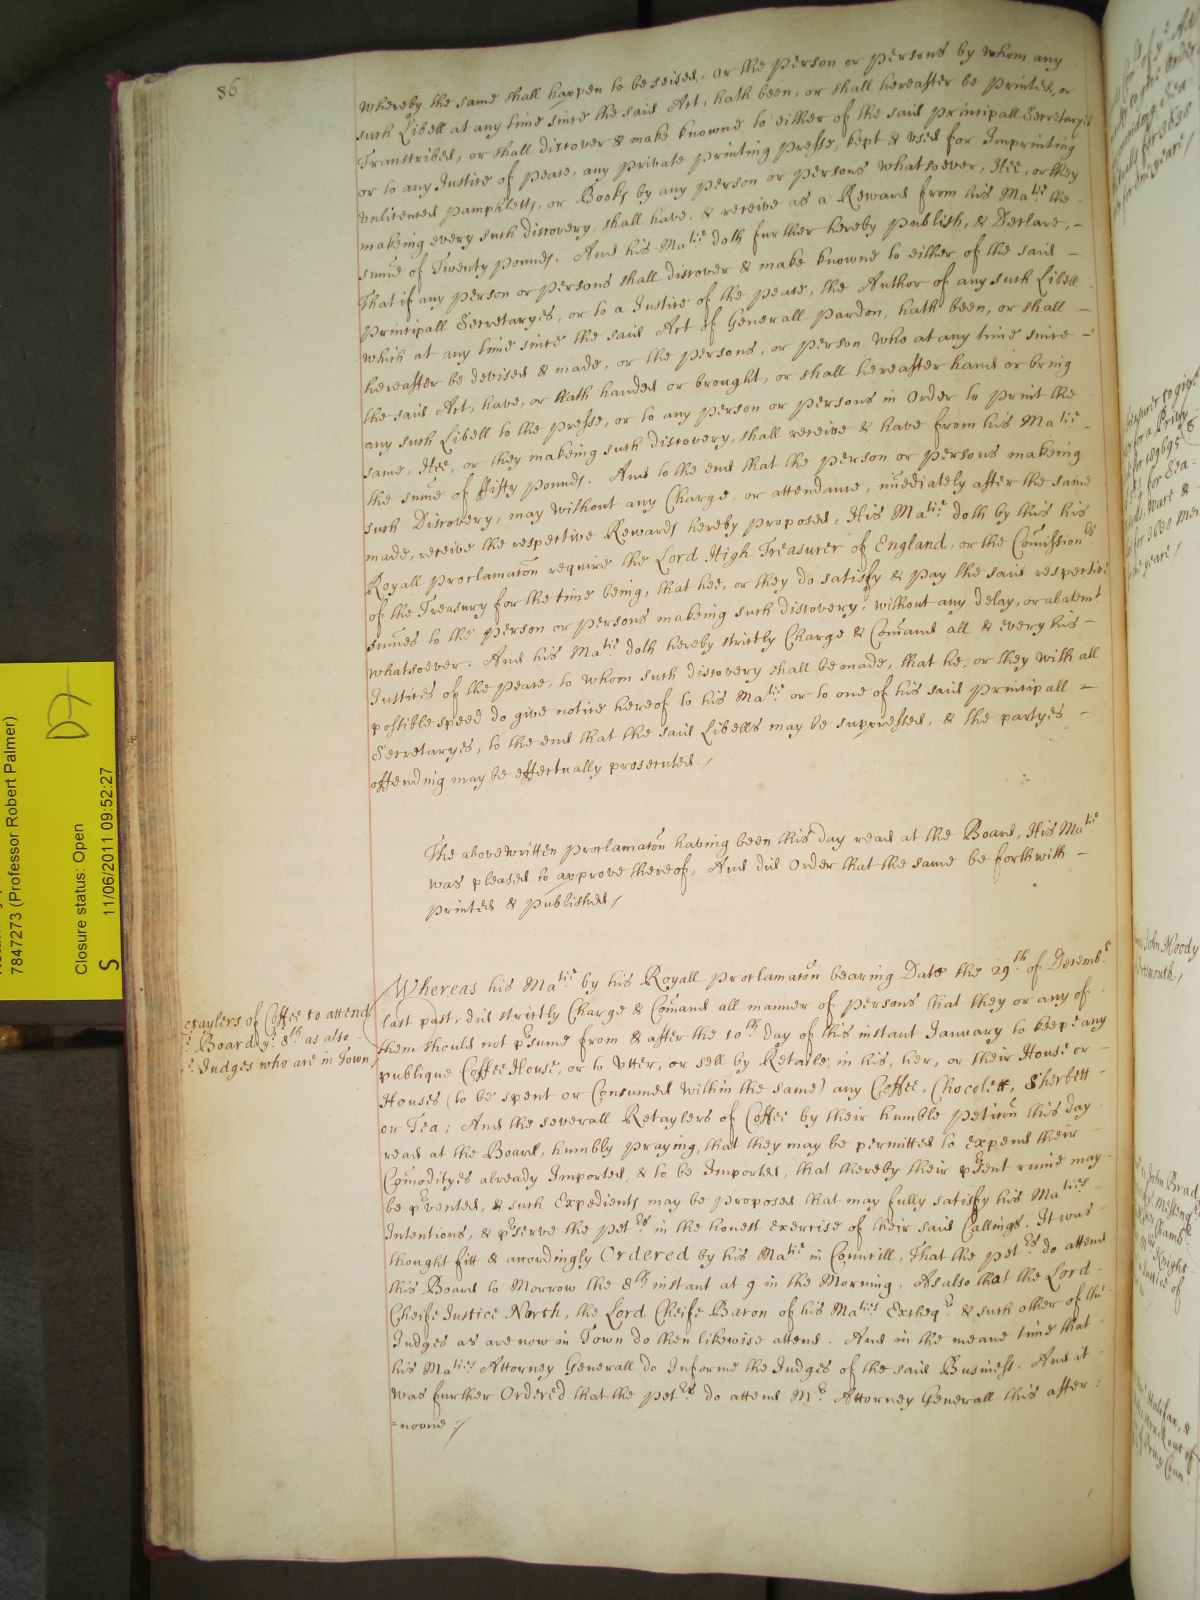 86
whereby the same shall happen to be seised, or the person or persons by whom any
such Libell at any time since the said Act, hath been, or shall hereafter be printed, or
Transcribed, or shall discover & make knowne to either of the said Principall Secretarys
or to any Justice of peace, any private printing presse, kept & used for Imprinting
unlicenced pamphletts, or Books by any person or persons whatsoever, Hee, or they
makeing every such discovery, shall have, & receive as a Reward from his Matie the
sume of Twenty pounds. And his Matie doth further hereby publish, & Declare,
That if any person or persons shall discover & make knowne to either of the said
principall Secretaryes, or to a Justice of the peace, the Author of any such Libell
which at any time since the said Act of Generall pardon, hath been, or shall
hereafter be devised & made, or the persons, or person who at any time since
the said Act, have, or hath handed or brought, or shall hereafter hand or bring
any such Libell to the presse, or to any person or persons in Order to print the
same, Hee, or they makeing such discovery, shall receive & have from his Matie
the sume of ffifty pounds. And to the end that the person or persons makeing
such Discovery, may without any Charge, or attendance, imediately after the same
made, receive the respective Rewards hereby proposed, His Matie doth by this his
Royall proclamacon require the Lord High Treasurer of England, or the Comissionrs
of the Treasury for the time being, that hee, or they do satisfy & pay the said respective
sumes to the person or persons makeing such discovery, without any delay, or abatemt
whatsoever. And his Matie doth hereby strictly Charge & Comand all & every his
Justices of the peace, to whom such discovery shall be made, that he, or they with all
possible speed do give notice hereof to his Matie or to one of his said principall
Secretaryes, to the end that the said Libells may be suppressed, & the partyes
offending may be effectually prosecuted./
The abovewritten proclamacon having been this day read at the Board, His Matie
was pleased to approve thereof, And did Order that the same be forthwith
printed & published/
etaylers of Coffee to attend
Board ye 8th as also
Judges who are in Town
Whereas his Matie by his Royall proclamacon bearing Date the 29th of Decembr
last past, did strictly Charge & Comand all manner of persons that they or any of
them should not psume from & after the 10th day of this instant January to keepe any
publique Coffee House, or to Utter, or sell by Retaile, in his, her, or their House or
Houses (to be spent or Consumed within the same) any Coffee, Chocolett, Sherbett
or Tea; And the severall Retaylers of Coffee by their humble peticon this day
read at the Board, humbly praying, that they may be permitted to Expend their
Comodityes already Imported, & to be Imported, that thereby their psent ruine may
be pvented, & such Expedients may be proposed that may fully satisfy his Maties
Intentions, & pserve the petrs in the honest exercise of their said Callings. It was
thought fitt & accordingly Ordered by his Matie in Councill, That the petrs do attend
this Board to Morrow the 8th instant at 9 in the Morning, As also that the Lord
Cheife Justice North, the Lord Cheife Baron of his Maties Excheqr & such other of the
Judges as are now in Town do then likewise attend. And in the meane time that
his Maties Attorney Generall do Informe the Judges of the said Business. And it
was further Ordered that the petrs do attend Mr Attorney Generall this after=
=noone./
7847273 (Professor Robert Palmer)
Closure status: Open
S 11/06/2011 09:52:27